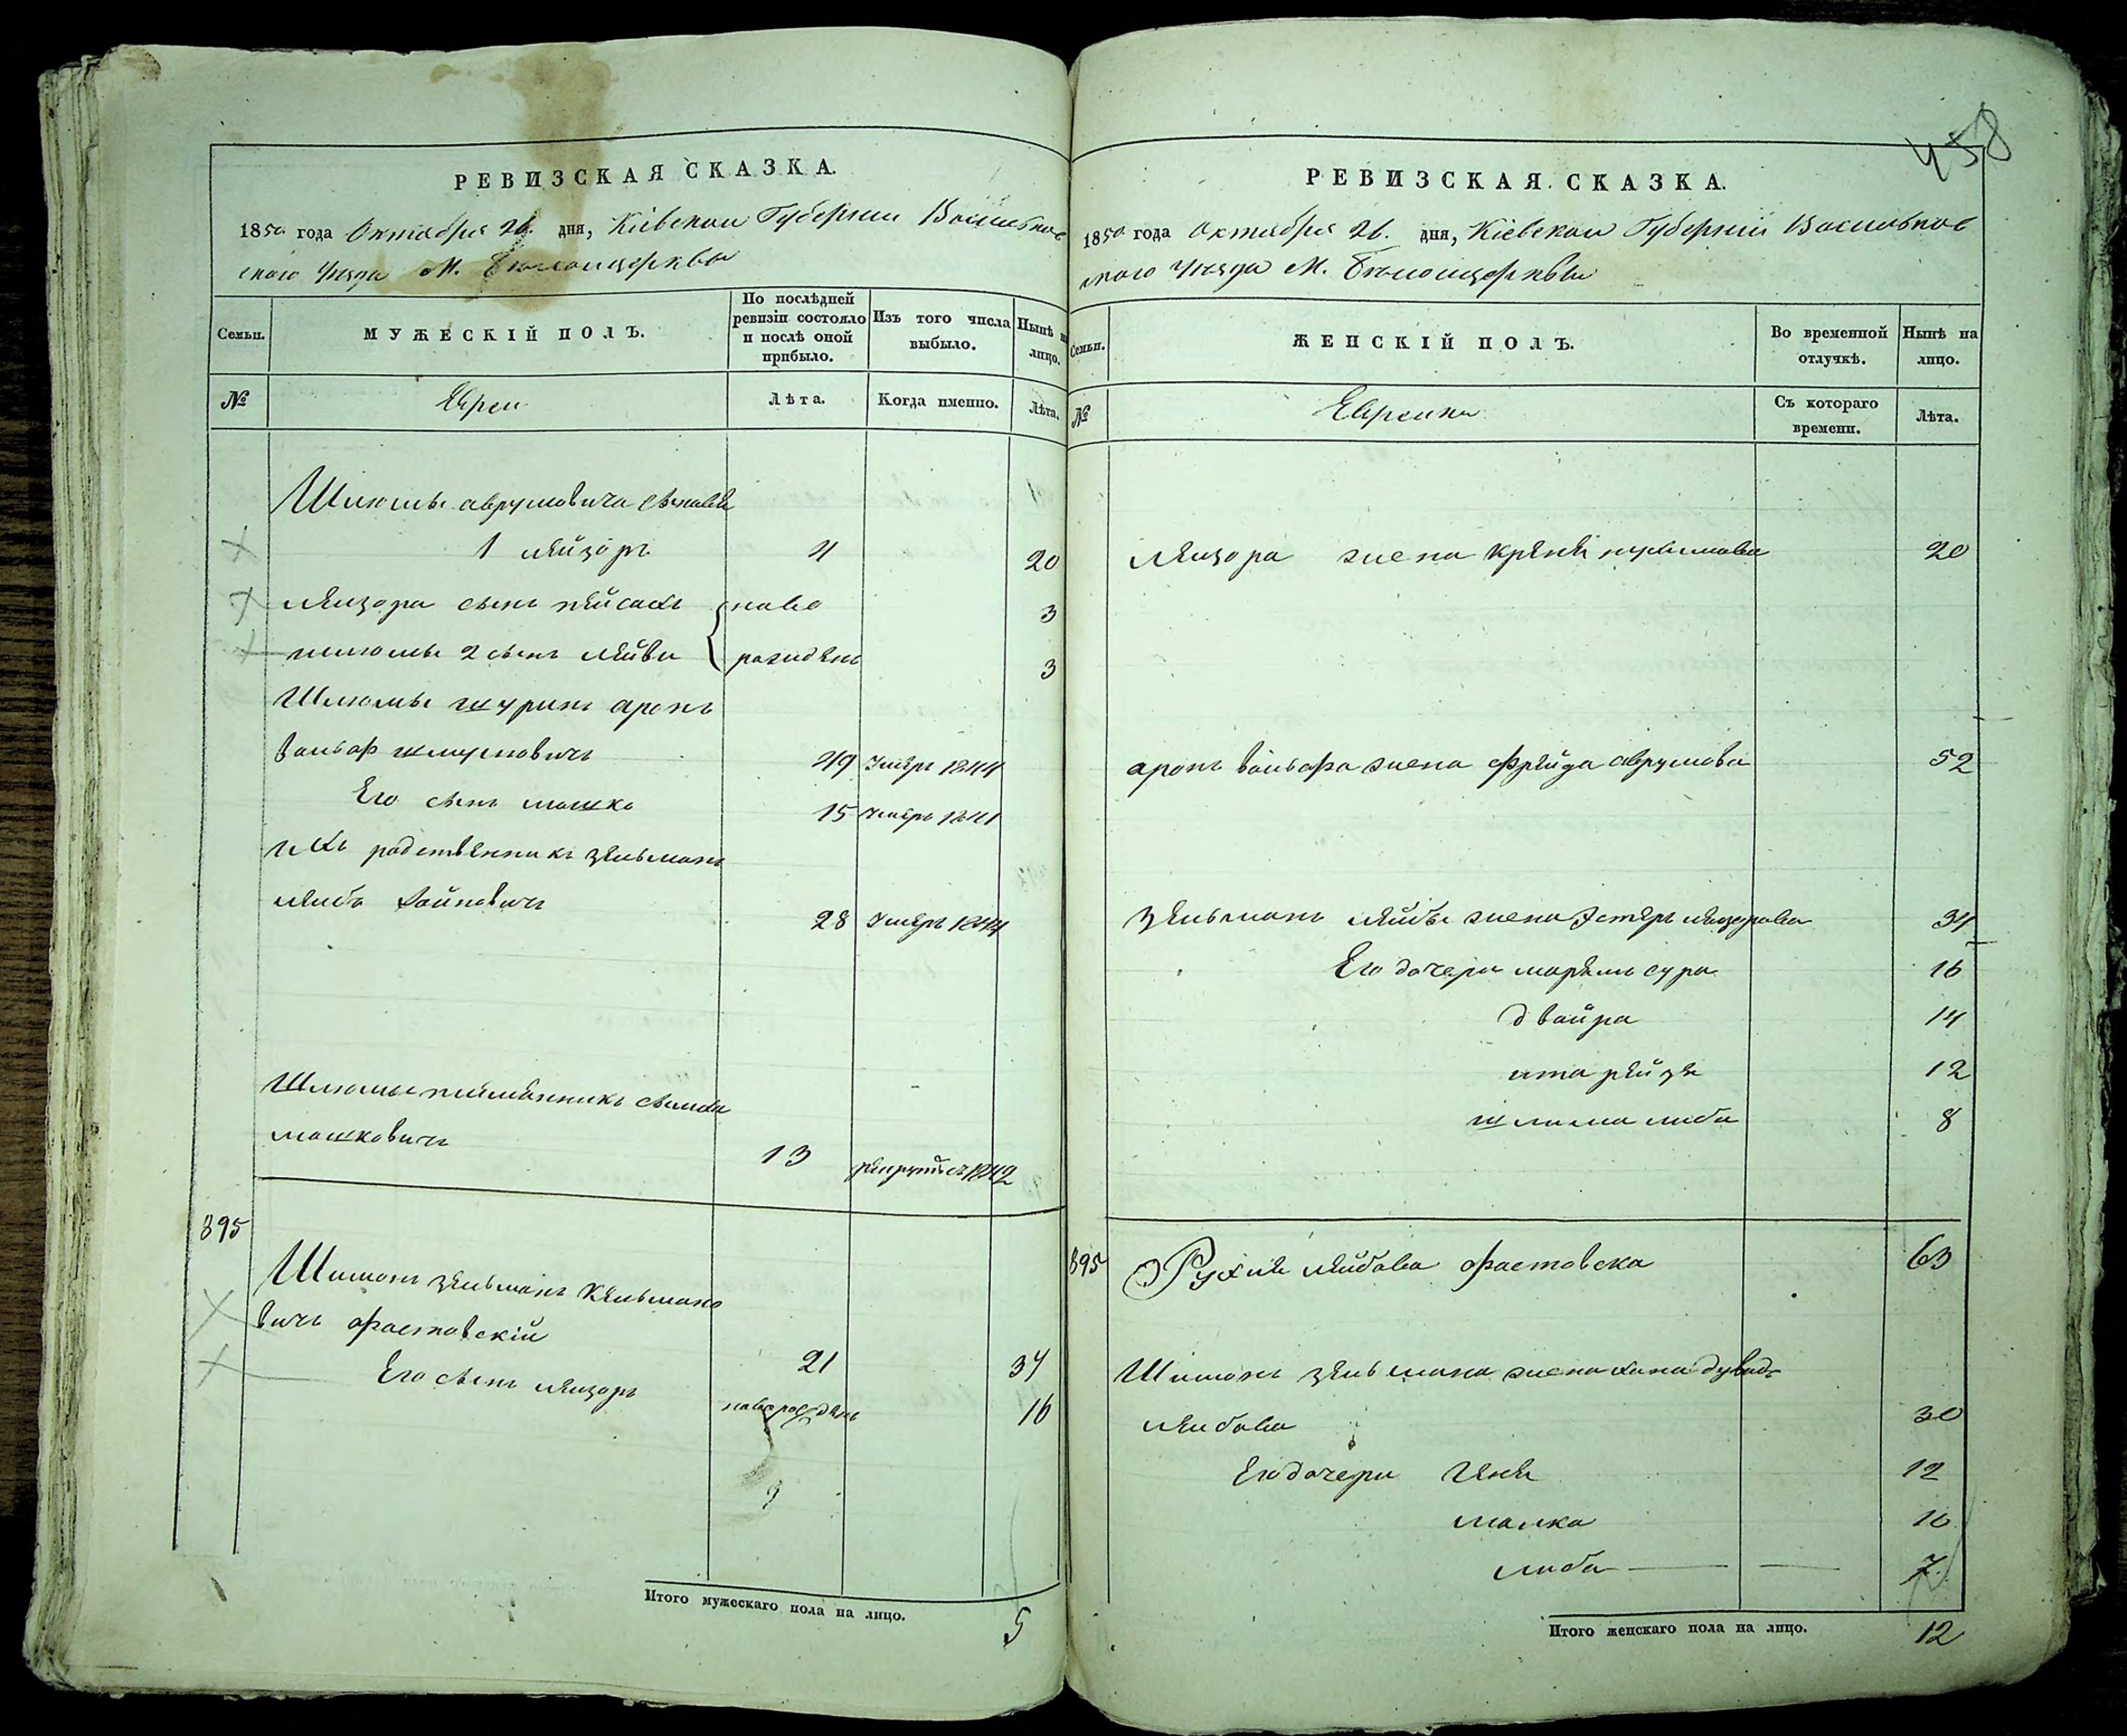 458
РЕВИЗСКАЯ СКАЗКА.
1850 года Октября 26. дня, Кіевской Губерніи Васильков
скаго Уезда М. Белойцеркви
Семьи.
МУЖЕСКІЙ ПОЛЪ.
По послѣдней ревизіи состояло и послѣ оной прибыло.
Изъ того числа выбыло.
Нынѣ на лицо.
№
Евреи
Лѣта.
Когда именно.
Лѣта.
Шлиомы аврумовича сыновья
1 лейзоръ 4 20
лейзора сынъ пейсахъ ново 3
шлиомы 2 сынъ лейви рожденъ 3
Шлиомы шуринъ аронъ
вольф шмулиовичъ 49 умеръ 1844
Его сынъ мошко 15 умеръ 1841
ихъ родственникъ зельманъ
лейба хаймовичъ 28 умеръ 1844
Шлиомы племянникъ
мошковичъ 13 1842
895
Шимонъ зельманъ кельмано
вичъ фастовскій 21 34
Его сынъ лейзоръ новорожденъ 16
Итого мужескаго пола на лицо. 5
РЕВИЗСКАЯ СКАЗКА.
1850 года Октября 26. дня, Кіевской Губерніи Васильков
скаго Уезда М. Белойцеркви
Семьи.
ЖЕНСКІЙ ПОЛЪ.
Во временной отлучкѣ.
Нынѣ на лицо.
№
Еврейки
Съ котораго времени.
Лѣта.
лейзора жена креня 20
аронъ вольфа жена фрейда аврумова 52
зельманъ лейбы жена Эстеръ лейзорова 34
Его дочери марьямъ сура 16
двойра 14
ита рейзя 12
шлима либа 8
895 Рухля лейбова фастовска 63
Шимонъ зельмана жена хана
лейбова 30
Его дочери Геня 12
малка 10
либа 7.
Итого женскаго пола на лицо. 12